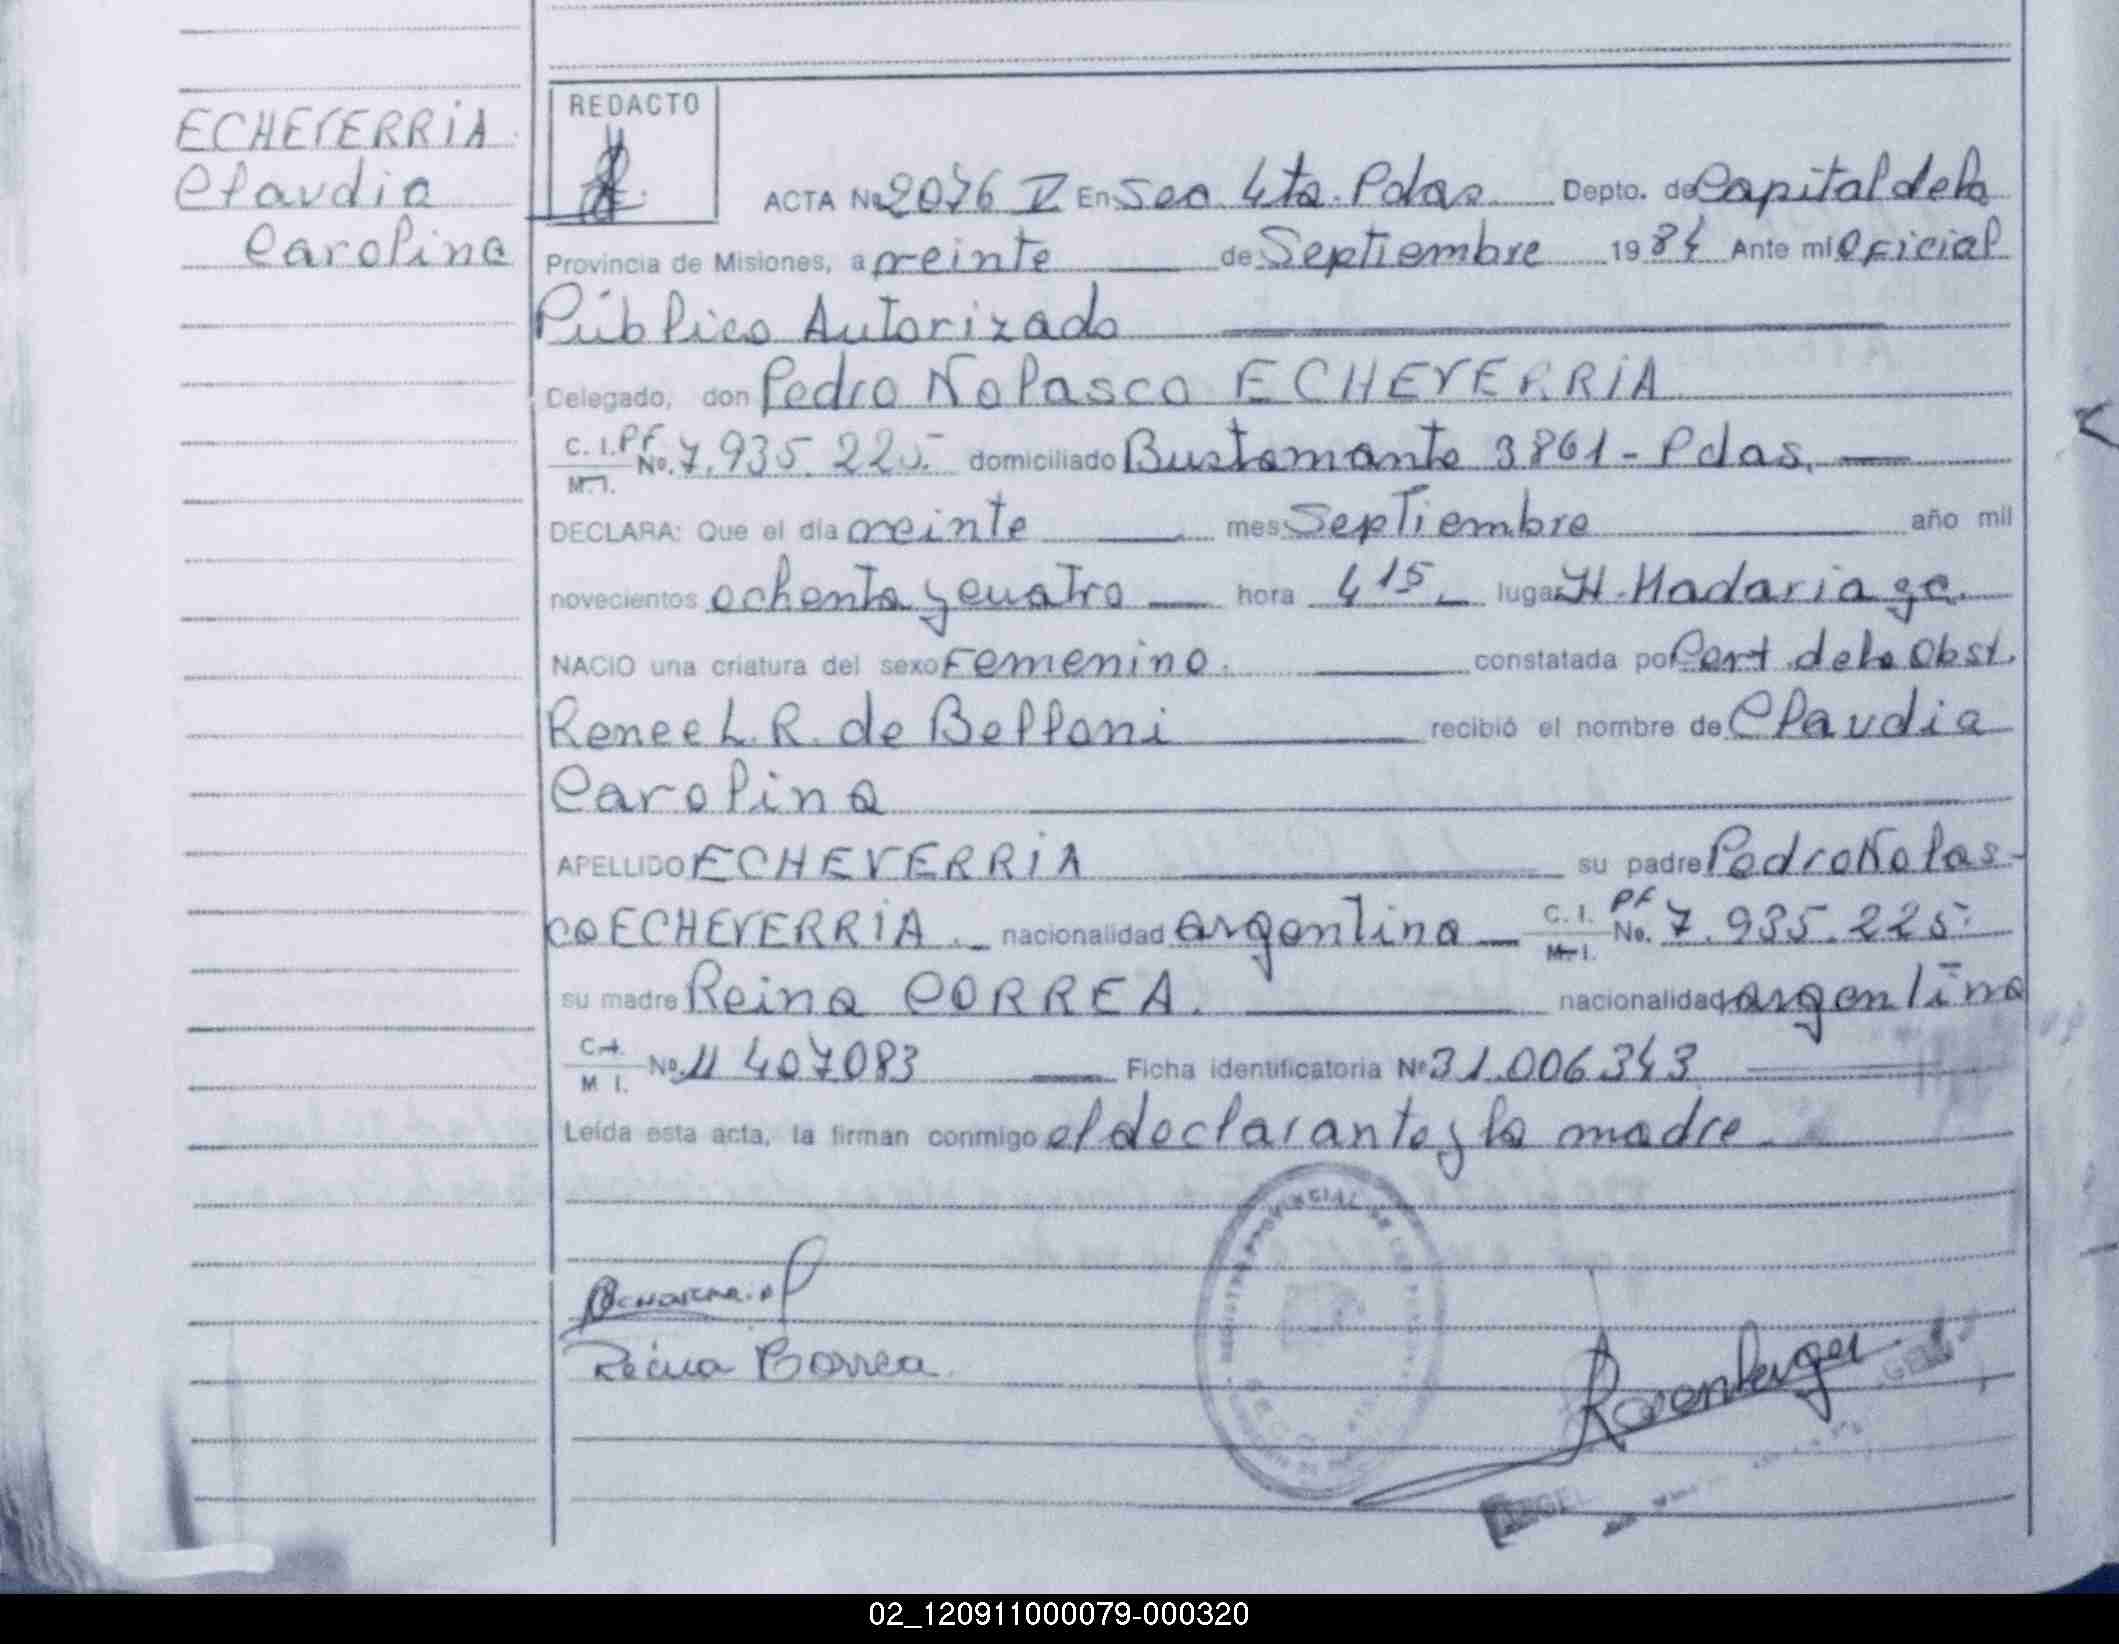 ECHEVERRIA
Claudia
Carolina
REDACTO
ACTA No 2076 V En Sec. 4ta. Pdas. Depto. de Capital de la
Provincia de Misiones, a veinte de Septiembre 1984 Ante mi Oficial
Público Autorizado
Delegado, don Pedro Nolasco ECHEVERRIA
C. I. PF No. 7.935.225 domiciliado Bustamante 3861 - Pdas.
M. I.
DECLARA: Que el día veinte mes Septiembre año mil
novecientos ochenta y cuatro hora 4 15 lugar H. Madariaga.
NACIO una criatura del sexo Femenino. constatada por Cert. de la Obst.
Renee L. R. de Belloni recibió el nombre de Claudia
Carolina
APELLIDO ECHEVERRIA su padre Pedro Nolas-
co ECHEVERRIA. nacionalidad argentina C. I. PF No. 7.935.225
M. I.
su madre Reina CORREA. nacionalidad argentina
C. I. No. 11 407083 Ficha identificatoria Nº 31.006.343
M I.
Leída esta acta, la firman conmigo el declarante y la madre.
Reina Correa
REGISTRO PROVINCIAL DE LAS PERSONAS
02_120911000079-000320